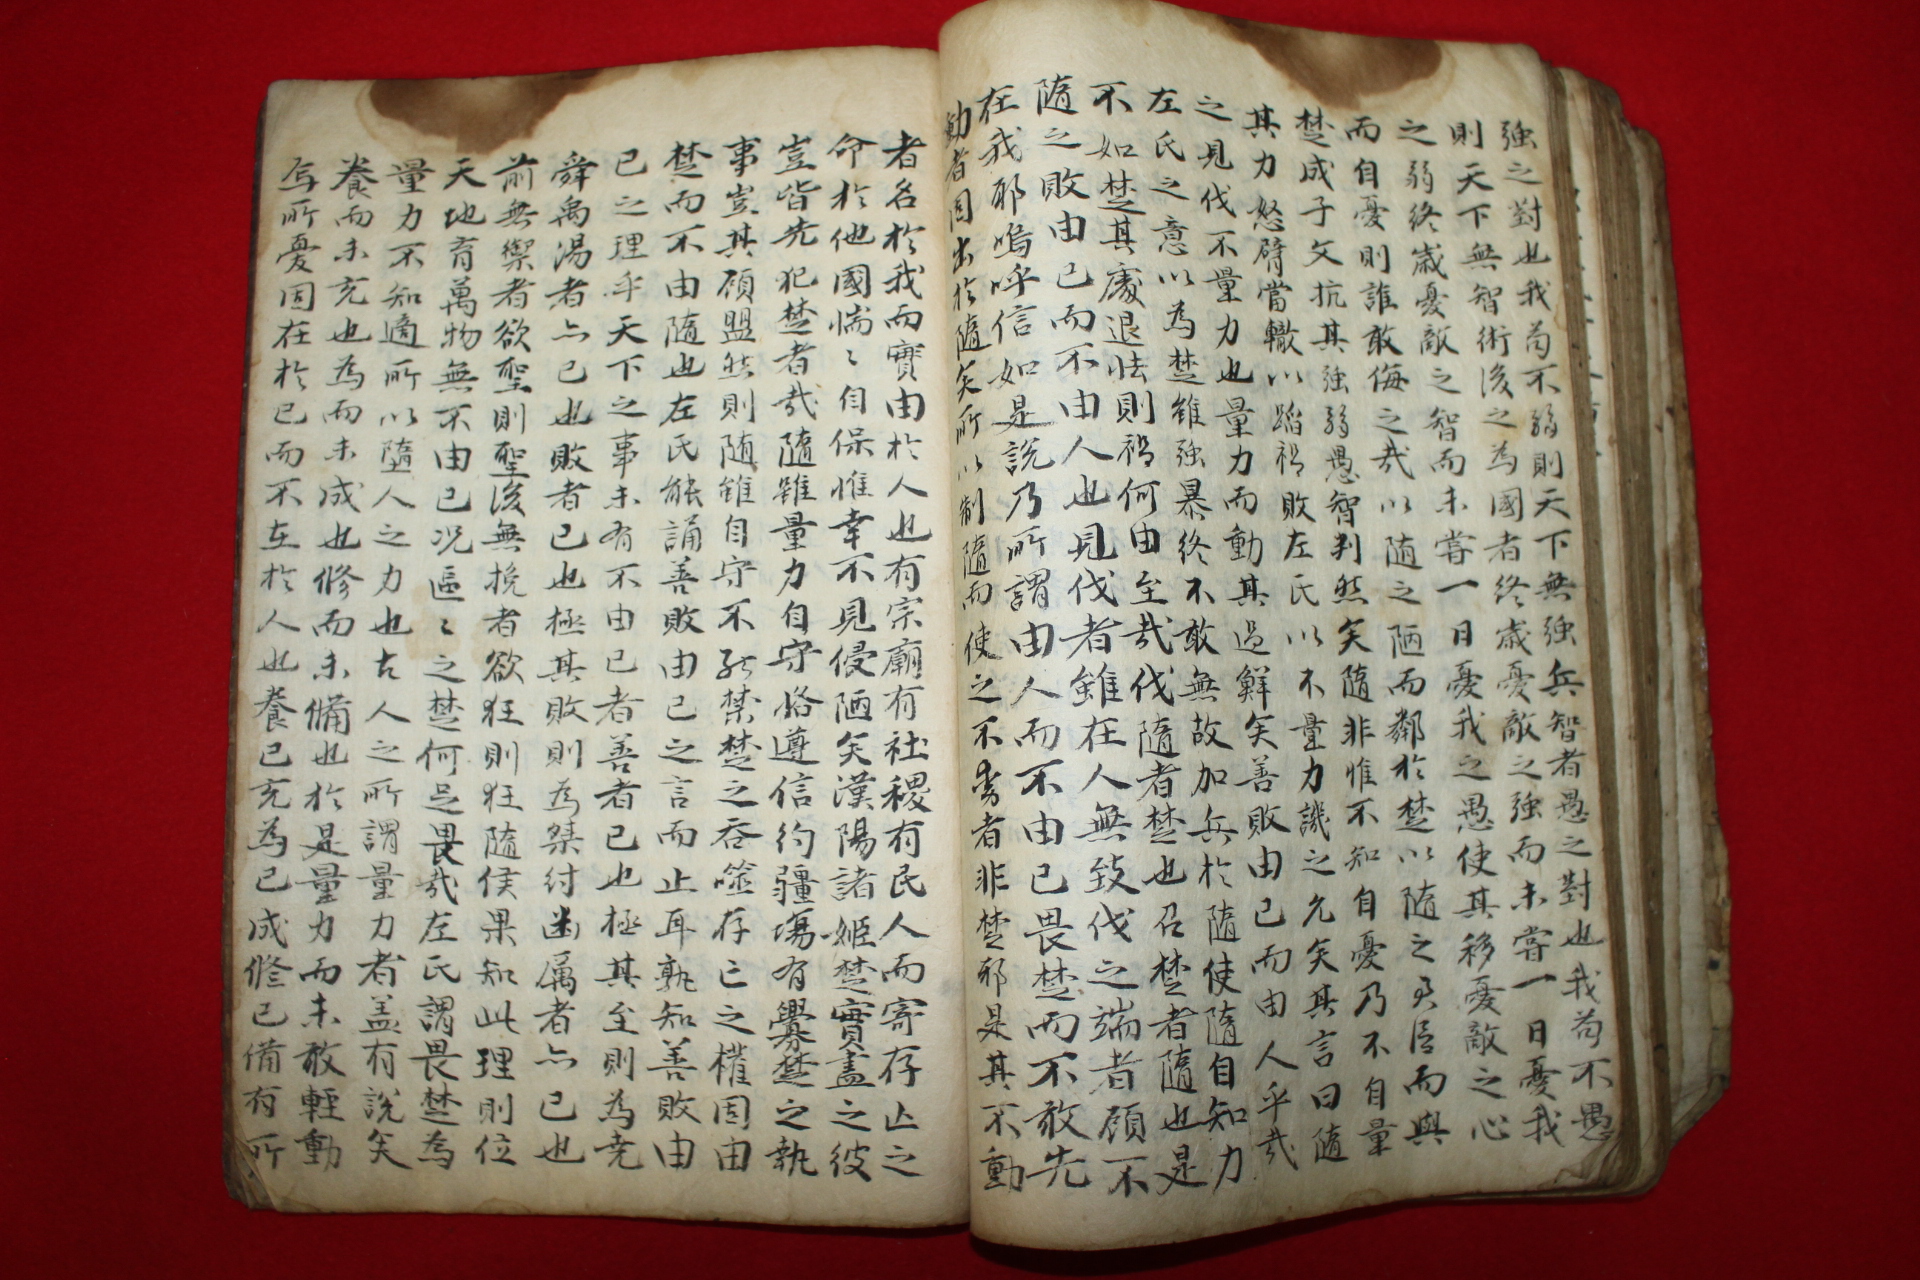 強之對也我苟不弱則天下無強兵智者愚之對也我苟不愚
則天下無智術後之為國者終歲憂敵之強而未嘗一日憂我
之弱終歲憂敵之智而未嘗一日憂我之愚使其移憂敵之心
而自憂則誰敢侮之哉以随之陋而鄰於楚以隨之君臣而與
楚成子文抗其強弱愚智判然矣隨非惟不知自憂乃不自量
其力怒臂當轍以蹈禍敗左氏以不量力譏之允矣其言曰隨
之見伐不量力也量力而動其過鮮矣善敗由已而由人乎哉
左氏之意以為楚雖強暴終不敢無故加兵於隨使隨自知力
不如楚其處退怯則禍何由至哉伐隨者楚也召楚者隨也是
隨之敗由已而不由人也見伐者雖在人無致伐之端者顧不
在我耶嗚呼信如是說乃所謂由人而不由已畏楚而不敢先
動者固出於隨矣所以制隨而使之不動者非楚邪是其不動
者名於我而實由於人也有宗廟有社稷有民人而寄存亡之
命於他國惴〻自保惟幸不見侵陋矣漢陽諸姬楚實盡之彼
豈皆先犯楚者哉隨雖量力自守恪遵信約疆埸有釁楚之執
事豈其顧盟然則随雖自守不能禁楚之吞噬存亡之權固由
楚而不由隨也左氏能誦善敗由已之言而止耳孰知善敗由
已之理乎天下之事未有不由已者善者已也極其至則為堯
舜禹湯者亦已也敗者已也極其敗則為桀紂幽厲者亦已也
前無禦者欲聖則聖後無挽者欲狂則狂隨侯果知此理則位
天地育萬物無不由已况區〻之楚何足畏哉左氏謂畏楚為
量力不知適所以墮人之力也古人之所謂量力者盖有說矣
養而未充也為而未成也修而未備也於是量力而未敢輕動
焉所憂固在於已而不在於人也養已充為已成修已備有所